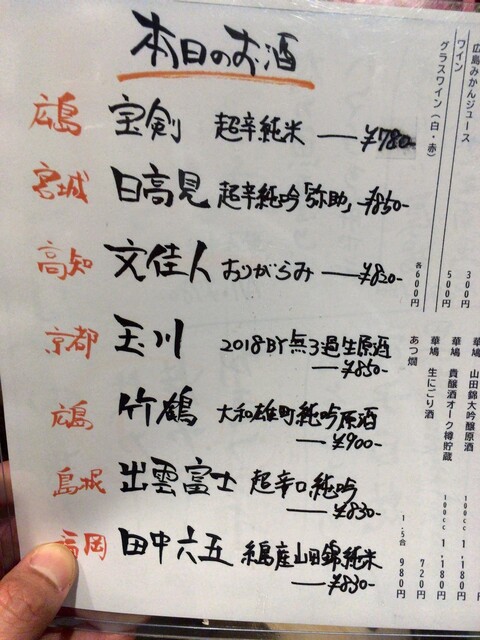 本日のお酒
広島 宝剣 超辛純米 ―¥780-
宮城 日高見 超辛純吟「弥助」-¥850-
高知 文佳人 おりがらみ ―¥820-
京都 玉川 2018BY無ろ過生原酒
―¥850-
広島 竹鶴 大和雄町純吟原酒
―¥900-
島根 出雲富士 超辛口純吟
―¥830-
福岡 田中六五 糸島産山田錦純米
―¥830-
広島みかんジュース 300円
ワイン 500円
グラスワイン(白・赤) 各600円
山田錦大吟醸原酒 100cc 1,180円
華鳩 貴醸酒オーク樽貯蔵 100cc 1,180円
華鳩 生にごり酒 720円
あつ燗 1.5合 980円